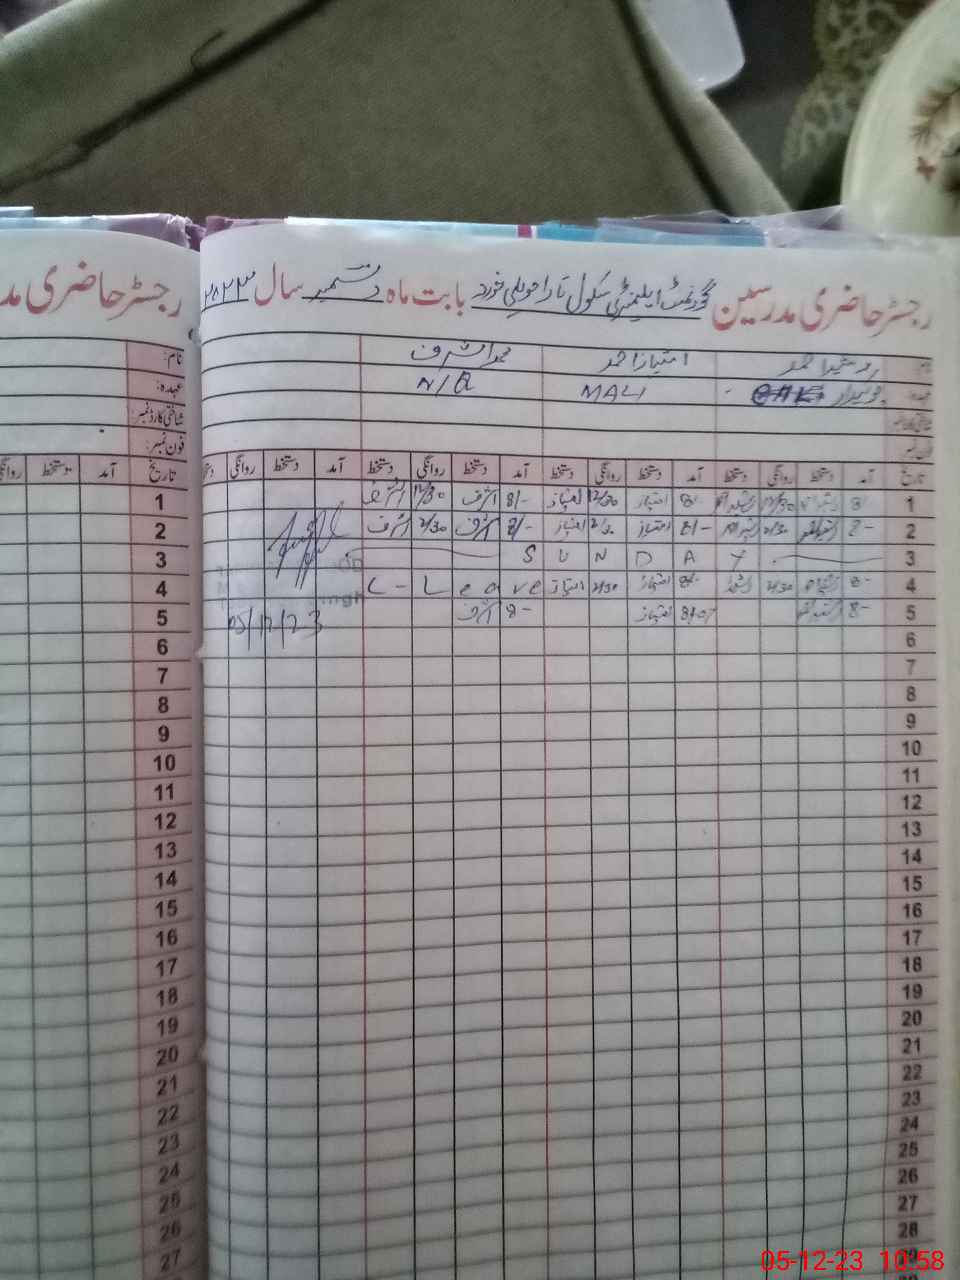 رجسٹر حاضری مدرسین گورنمنٹ ایلیمنٹری سکول تارا حویلی خورد بابت ماہ دسمبر سال ۲۰۲۳
رجسٹر حاضری مد
نام: امتیاز احمد محمد اشرف
عہدہ: چوکیدار MALI N/Q
شناختی کارڈ نمبر:
فون نمبر:
تاریخ آمد دستخط روانگی دستخط آمد دستخط روانگی دستخط آمد دستخط روانگی دستخط آمد دستخط روانگی
1 8 12/30 8/- امتیاز 12/30 امتیاز 8/- اشرف 12/30 اشرف
2 8- 2/30 8/- امتیاز 2/30 امتیاز 8/- اشرف 2/30 اشرف
3 S U N D A Y
4 8- 2/30 8/- امتیاز 2/30 امتیاز C-Leave
5 8- امتیاز 8- اشرف 05/12/23
6
7
8
9
10
11
12
13
14
15
16
17
18
19
20
21
22
23
24
25
26
27
28
29
نام:
عہدہ:
شناختی کارڈ نمبر:
فون نمبر:
تاریخ آمد دستخط
1
2
3
4
5
6
7
8
9
10
11
12
13
14
15
16
17
18
19
20
21
22
23
24
25
26
27
05-12-23 10:58